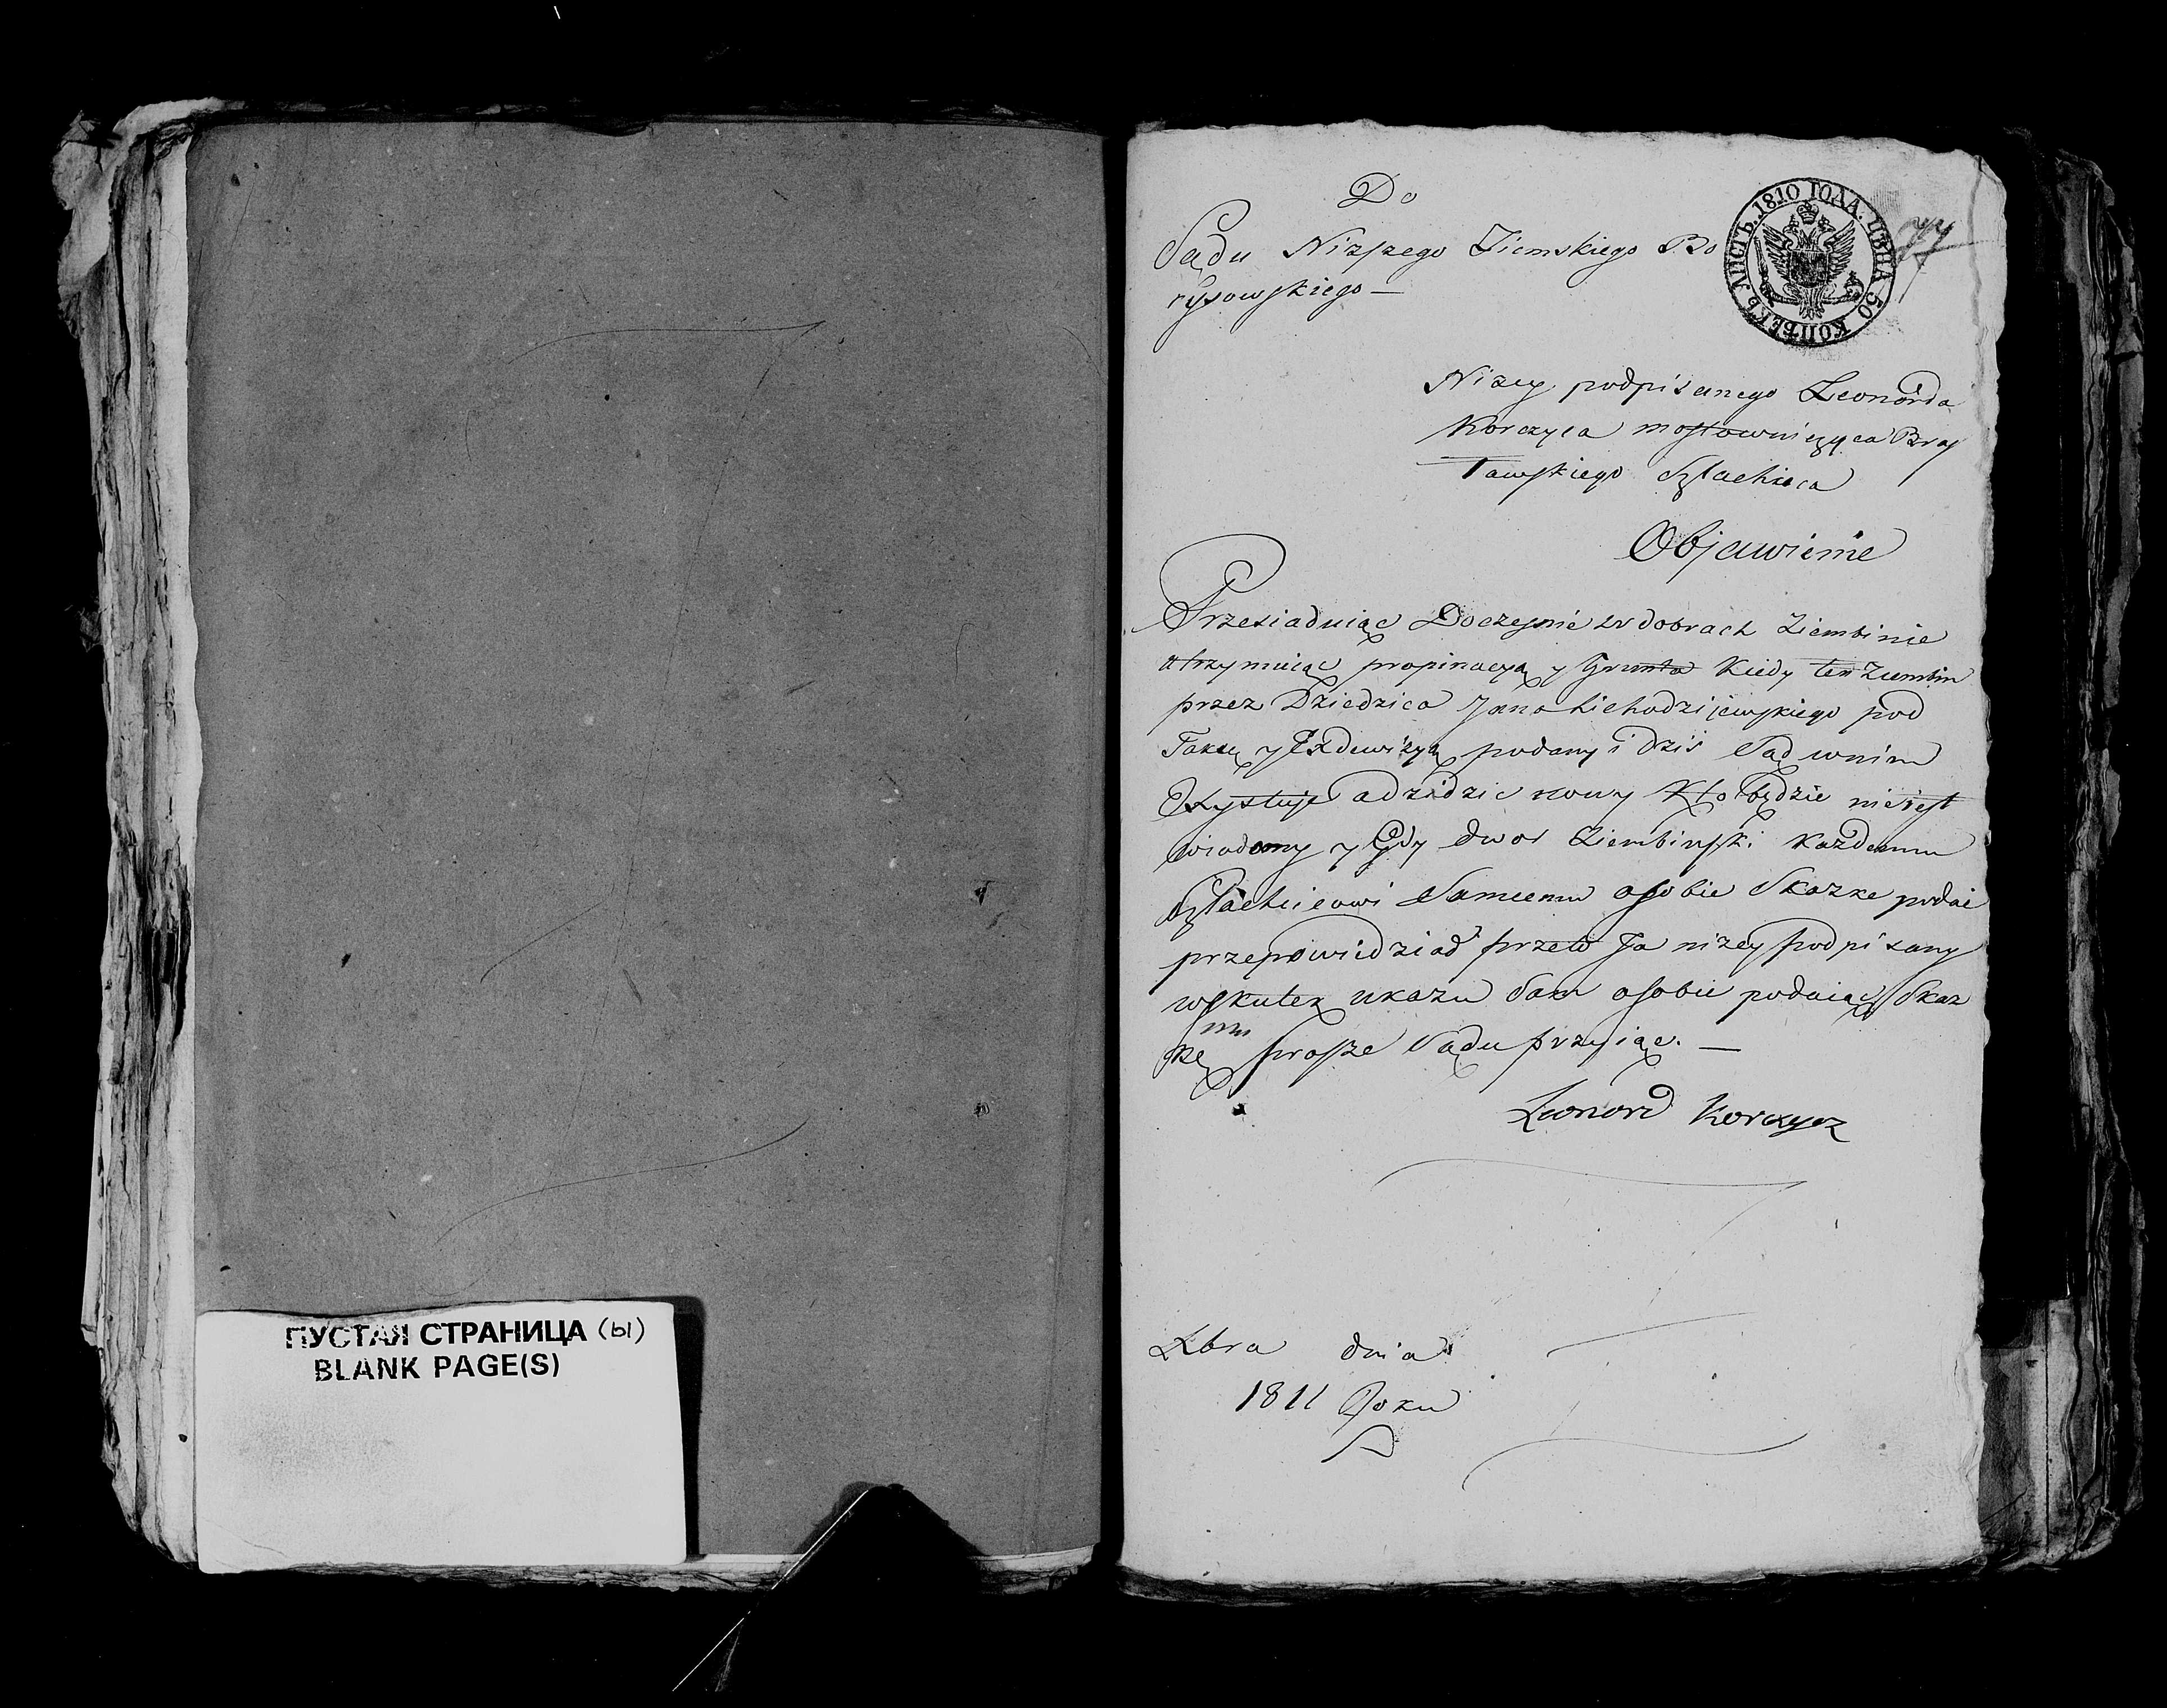 Do
Sądu Niższego Ziemskiego Bo
rysowskiego —
ЛИСТЪ. 1810 ГОДА. ЦѢНА 50 КОПѢЕКЪ
77
Niżey podpisanego Leonarda
Korczyca mostowniczyca Bras
ławskiego Szlachcica
Objawienie
Przesiaduiąc Doczesnie w dobrach Ziembinie
utrzymuiąc propinacyą y Grunta Kiedy ten Ziembin
przez Dziedzica Jana Chodzijewskiego pod
Taxę y Exdewizyą podany i dziś Sąd w nim
Exystuje a dzidzic nowy Kto będzie niejest
wiadomy y Gdy dwor Ziembinski każdemu
Szlachcicowi Samemu osobie Skazke podać
przepowiedział przeto Ja niżey podpisany
wskutek ukazu Sam osobie podaiąc Skaz
kę prosze Sądu przyiąć. —
Leonard Korczycz
Xbra dnia
1811 Roku
ПУСТАЯ СТРАНИЦА (ы)
BLANK PAGE(S)